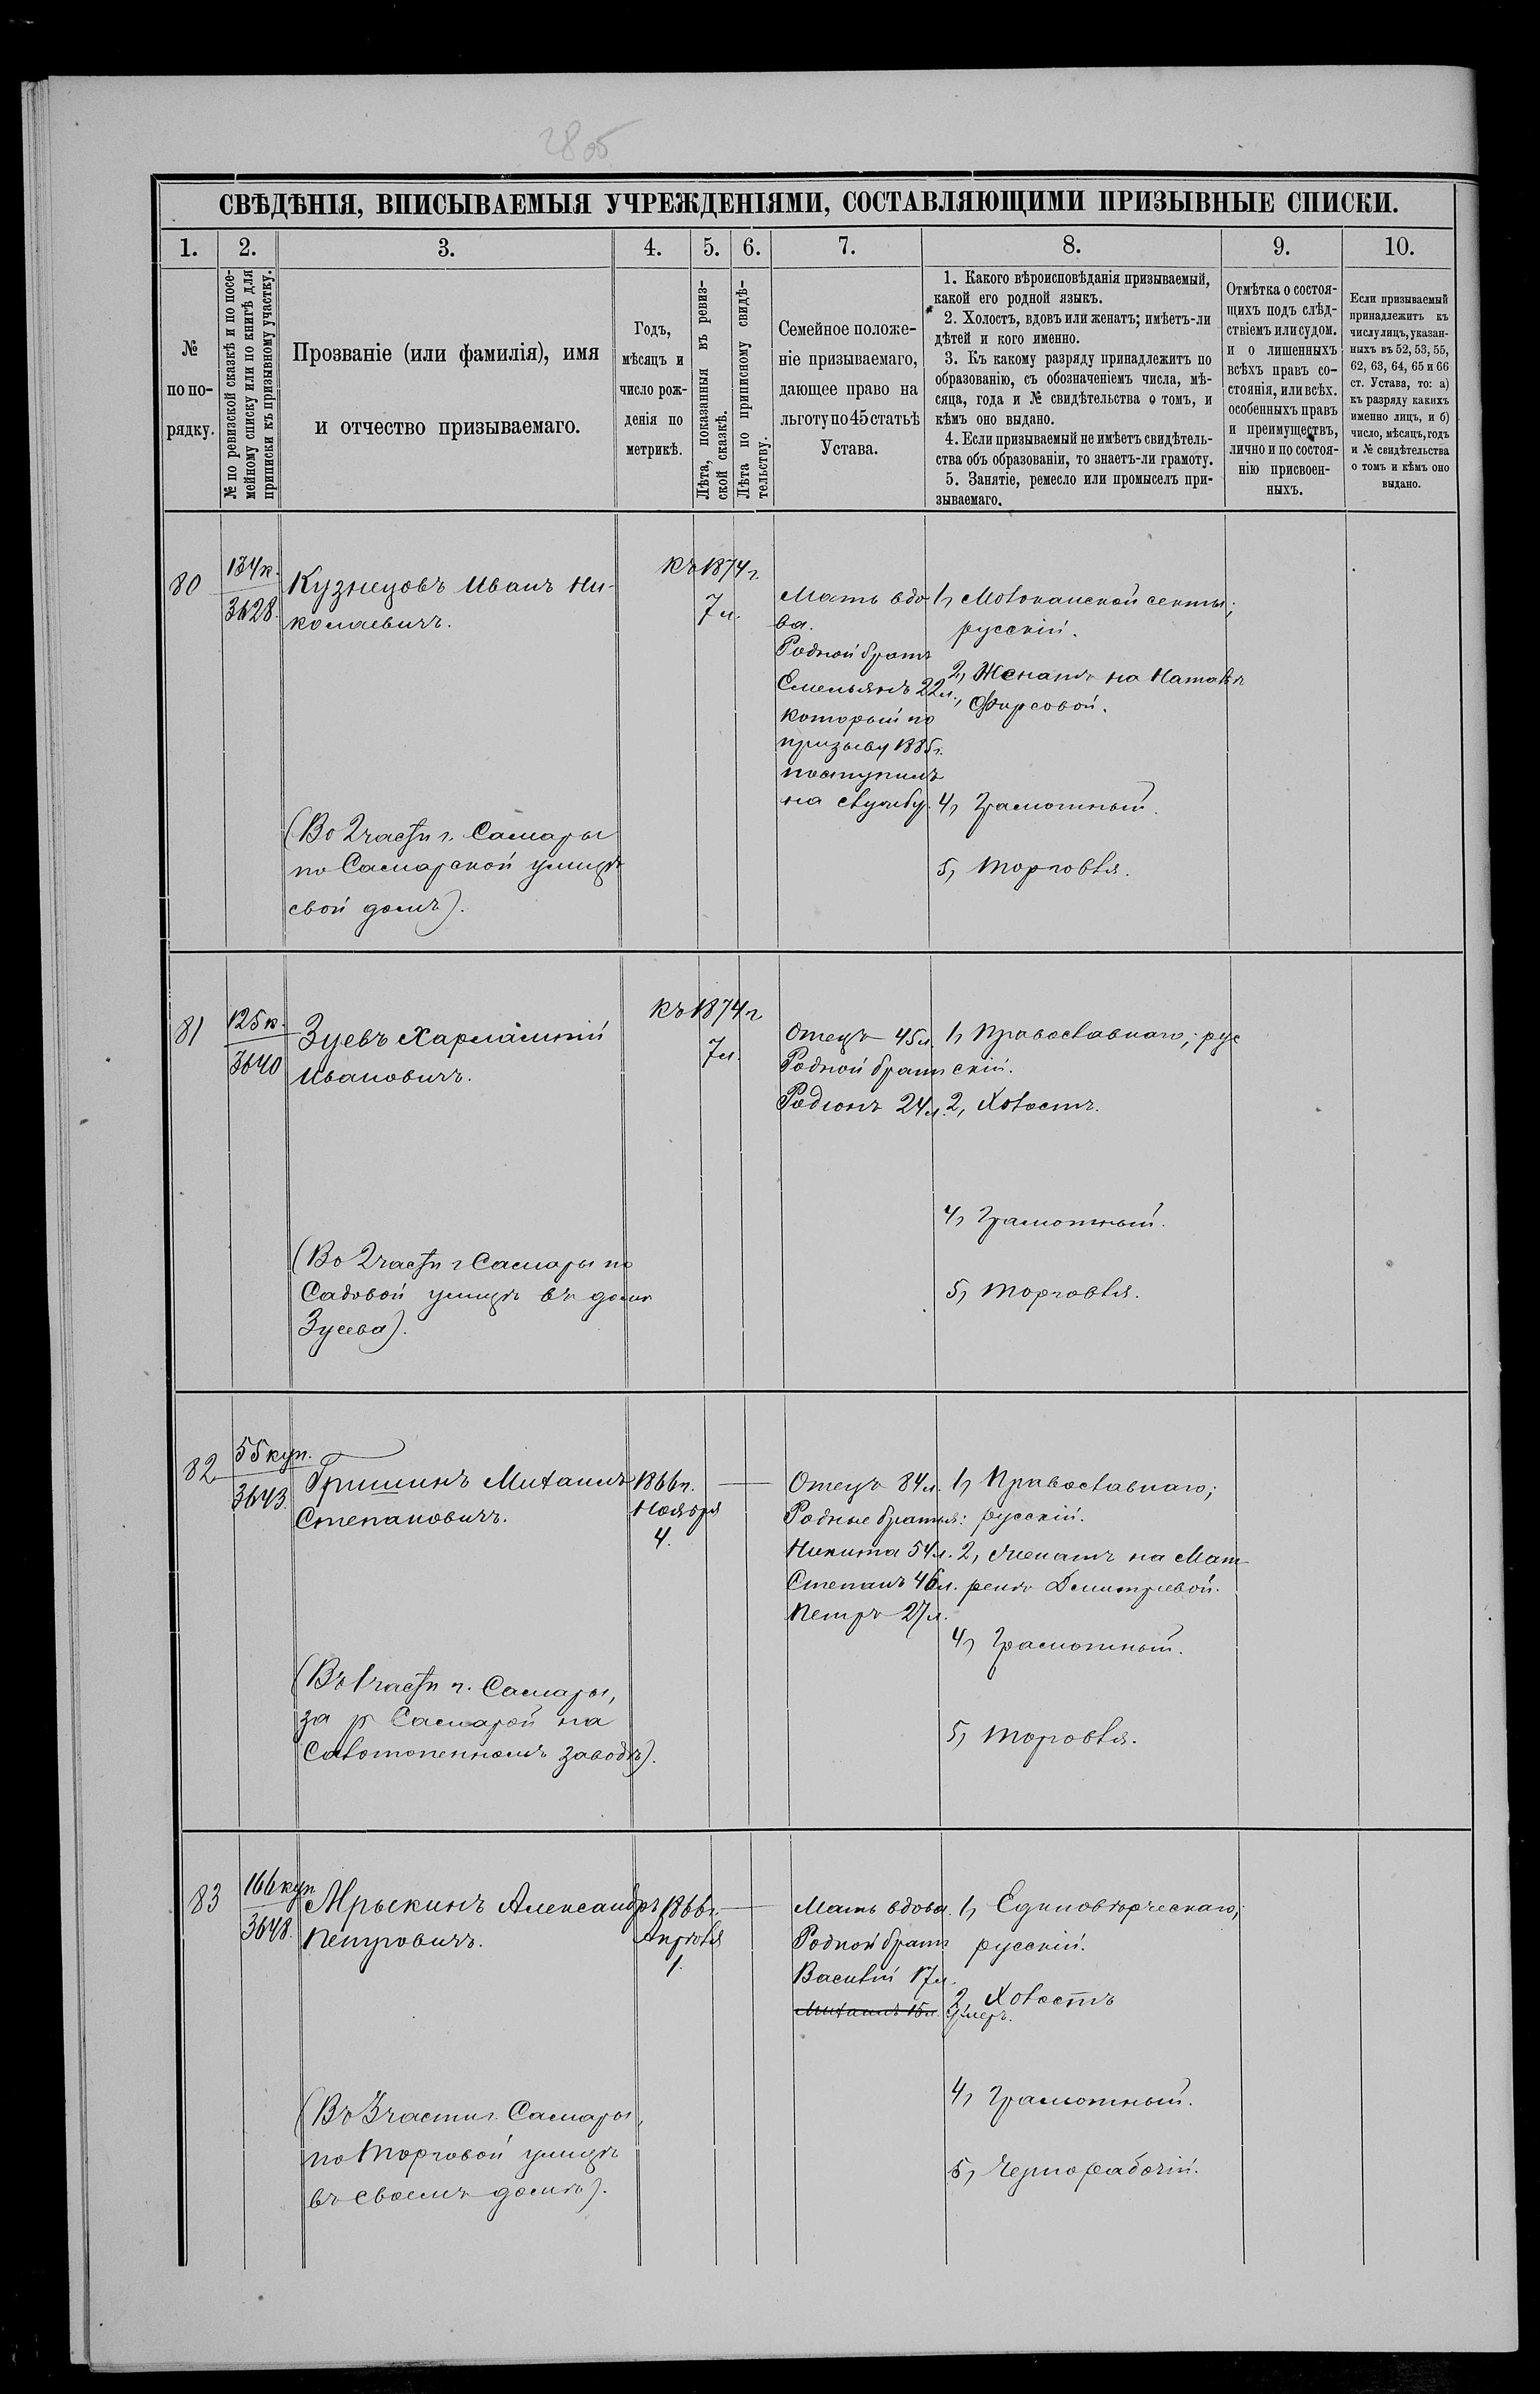 28 об
СВѢДѢНІЯ, ВПИСЫВАЕМЫЯ УЧРЕЖДЕНІЯМИ, СОСТАВЛЯЮЩИМИ ПРИЗЫВНЫЕ СПИСКИ.
1. 2. 3. 4. 5. 6. 7. 8. 9. 10.
№
по по-
рядку.
№ по ревизской сказкѣ и по посе-
мейному списку или по книгѣ для
приписки къ призывному участку.
Прозваніе (или фамилія), имя
и отчество призываемаго.
Годъ,
мѣсяцъ и
число рож-
денія по
метрикѣ.
Лѣта, показанныя въ ревиз-
ской сказкѣ.
Лѣта по приписному свидѣ-
тельству.
Семейное положе-
ніе призываемаго,
дающее право на
льготу по 45 статьѣ
Устава.
1. Какого вѣроисповѣданія призываемый,
какой его родной языкъ.
2. Холостъ, вдовъ или женатъ; имѣетъ-ли
дѣтей и кого именно.
3. Къ какому разряду принадлежитъ по
образованію, съ обозначеніемъ числа, мѣ-
сяца, года и № свидѣтельства о томъ, и
кѣмъ оно выдано.
4. Если призываемый не имѣетъ свидѣтель-
ства объ образованіи, то знаетъ-ли грамоту.
5. Занятіе, ремесло или промыселъ при-
зываемаго.
Отмѣтка о состоя-
щихъ подъ слѣд-
ствіемъ или судом.
и о лишенныхъ
всѣхъ правъ со-
стоянія, или всѣх.
особенныхъ правъ
и преимуществъ,
лично и по состоя-
нію присвоен-
ныхъ.
Если призываемый
принадлежитъ къ
числу лицъ, указан-
ныхъ въ 52, 53, 55,
62, 63, 64, 65 и 66
ст. Устава, то: а)
къ разряду какихъ
именно лицъ, и б)
число, мѣсяцъ, годъ
и № свидѣтельства
о томъ и кѣмъ оно
выдано.
80
134 к.
3628.
Кузнецовъ Иванъ Ни-
колаевичъ.
(Во 2 части г. Самары
по Самарской улицѣ
свой домъ).
Къ 1874 г.
7 л.
Мать вдо-
ва.
Родной братъ
Емельянъ 22 л.,
который по
призыву 1885 г.
поступилъ
на службу.
1, Молоканской секты;
русскій.
2, Женатъ на Натальѣ
Фирсовой.
4, Грамотный.
5, Торговля.
81
125 к.
3640
Зуевъ Харлампій
Ивановичъ.
(Во 2 части г Самары по
Садовой улицѣ въ домѣ
Зуева).
Къ 1874 г
7 л.
Отецъ 45 л.
Родной братъ
Родіонъ 24 л.
1, Православнаго; рус
скій.
2, Холостъ.
4, Грамотный.
5, Торговля.
82
55 куп.
3643.
Гришинъ Михаилъ
Степановичъ.
(Въ 1 части г. Самары,
за р Самарой на
Салотопенномъ заводѣ).
1866 г.
Ноября
4.
Отецъ 84 л.
Родные братья:
Никита 54 л.
Степанъ 46 л.
Петръ 27 л.
1, Православнаго;
русскій.
2, Женатъ на Мат-
ренѣ Дмитріевой.
4, Грамотный.
5, Торговля.
83
166 куп
3648.
Мрыкинъ Александръ
Петровичъ.
(Въ 3 части г. Самары,
по Торговой улицѣ
въ своемъ домѣ).
1866 г.
Апрѣля
1.
Мать вдова.
Родной братъ
Василій 17 л.
Михаилъ 15 л. Умеръ.
1, Единовѣрческаго;
русскій.
2, Холостъ
4, Грамотный.
5, Чернорабочій.